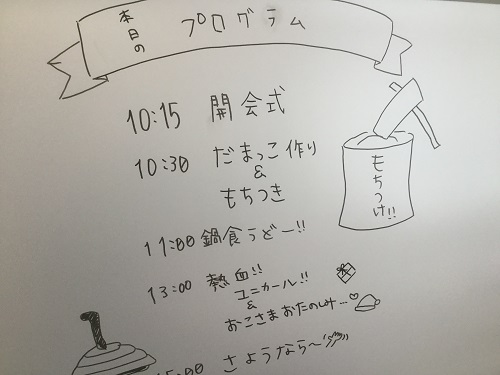 本日の プログラム
10:15 開会式
10:30 だまっこ作り
&
もちつき
もちつけ!!
11:00 鍋食うどー!!
13:00 熱血!!
ユニカール!!
&
おこさまおたのしみ…♡
15:00 さようなら〜